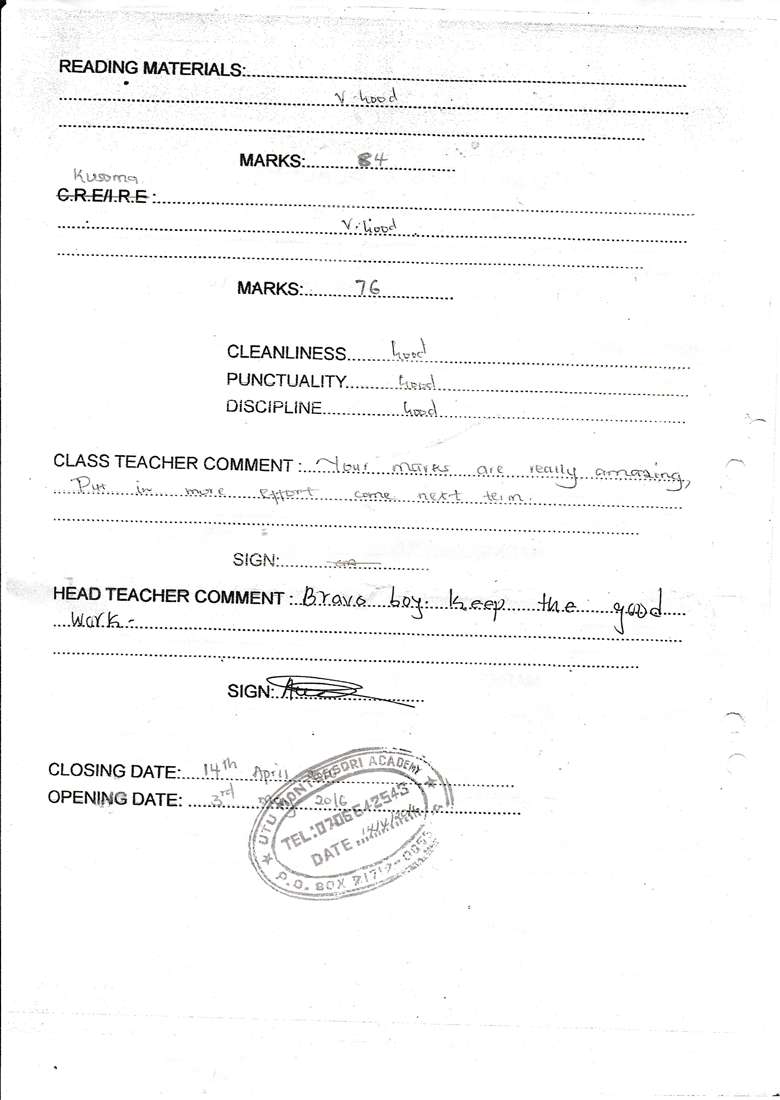 READING MATERIALS:
V. Good
MARKS: 84
Kusoma
C.R.E/I.R.E :
V. Good
MARKS: 76
CLEANLINESS Good
PUNCTUALITY Good
DISCIPLINE Good
CLASS TEACHER COMMENT : Your marks are really amazing,
Put in more effort come next term.
SIGN:
HEAD TEACHER COMMENT : Bravo boy. Keep the good
work.
SIGN:
CLOSING DATE: 14th April
OPENING DATE: 3rd May 2016
UTU MONTESSORI ACADEMY
TEL:0706642543
DATE 14/4/2016
P.O. BOX 71717-